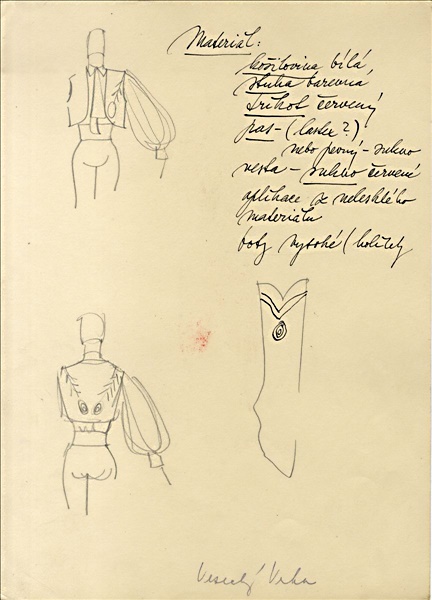 Materiál:
košilovina bílá
stuha barevná
trikot červený
pas - (lastex?)
nebo pevný - sukno
vesta - sukno červené
aplikace z nelesklého
materiálu
boty vysoké (holitely
Veselý Vrba